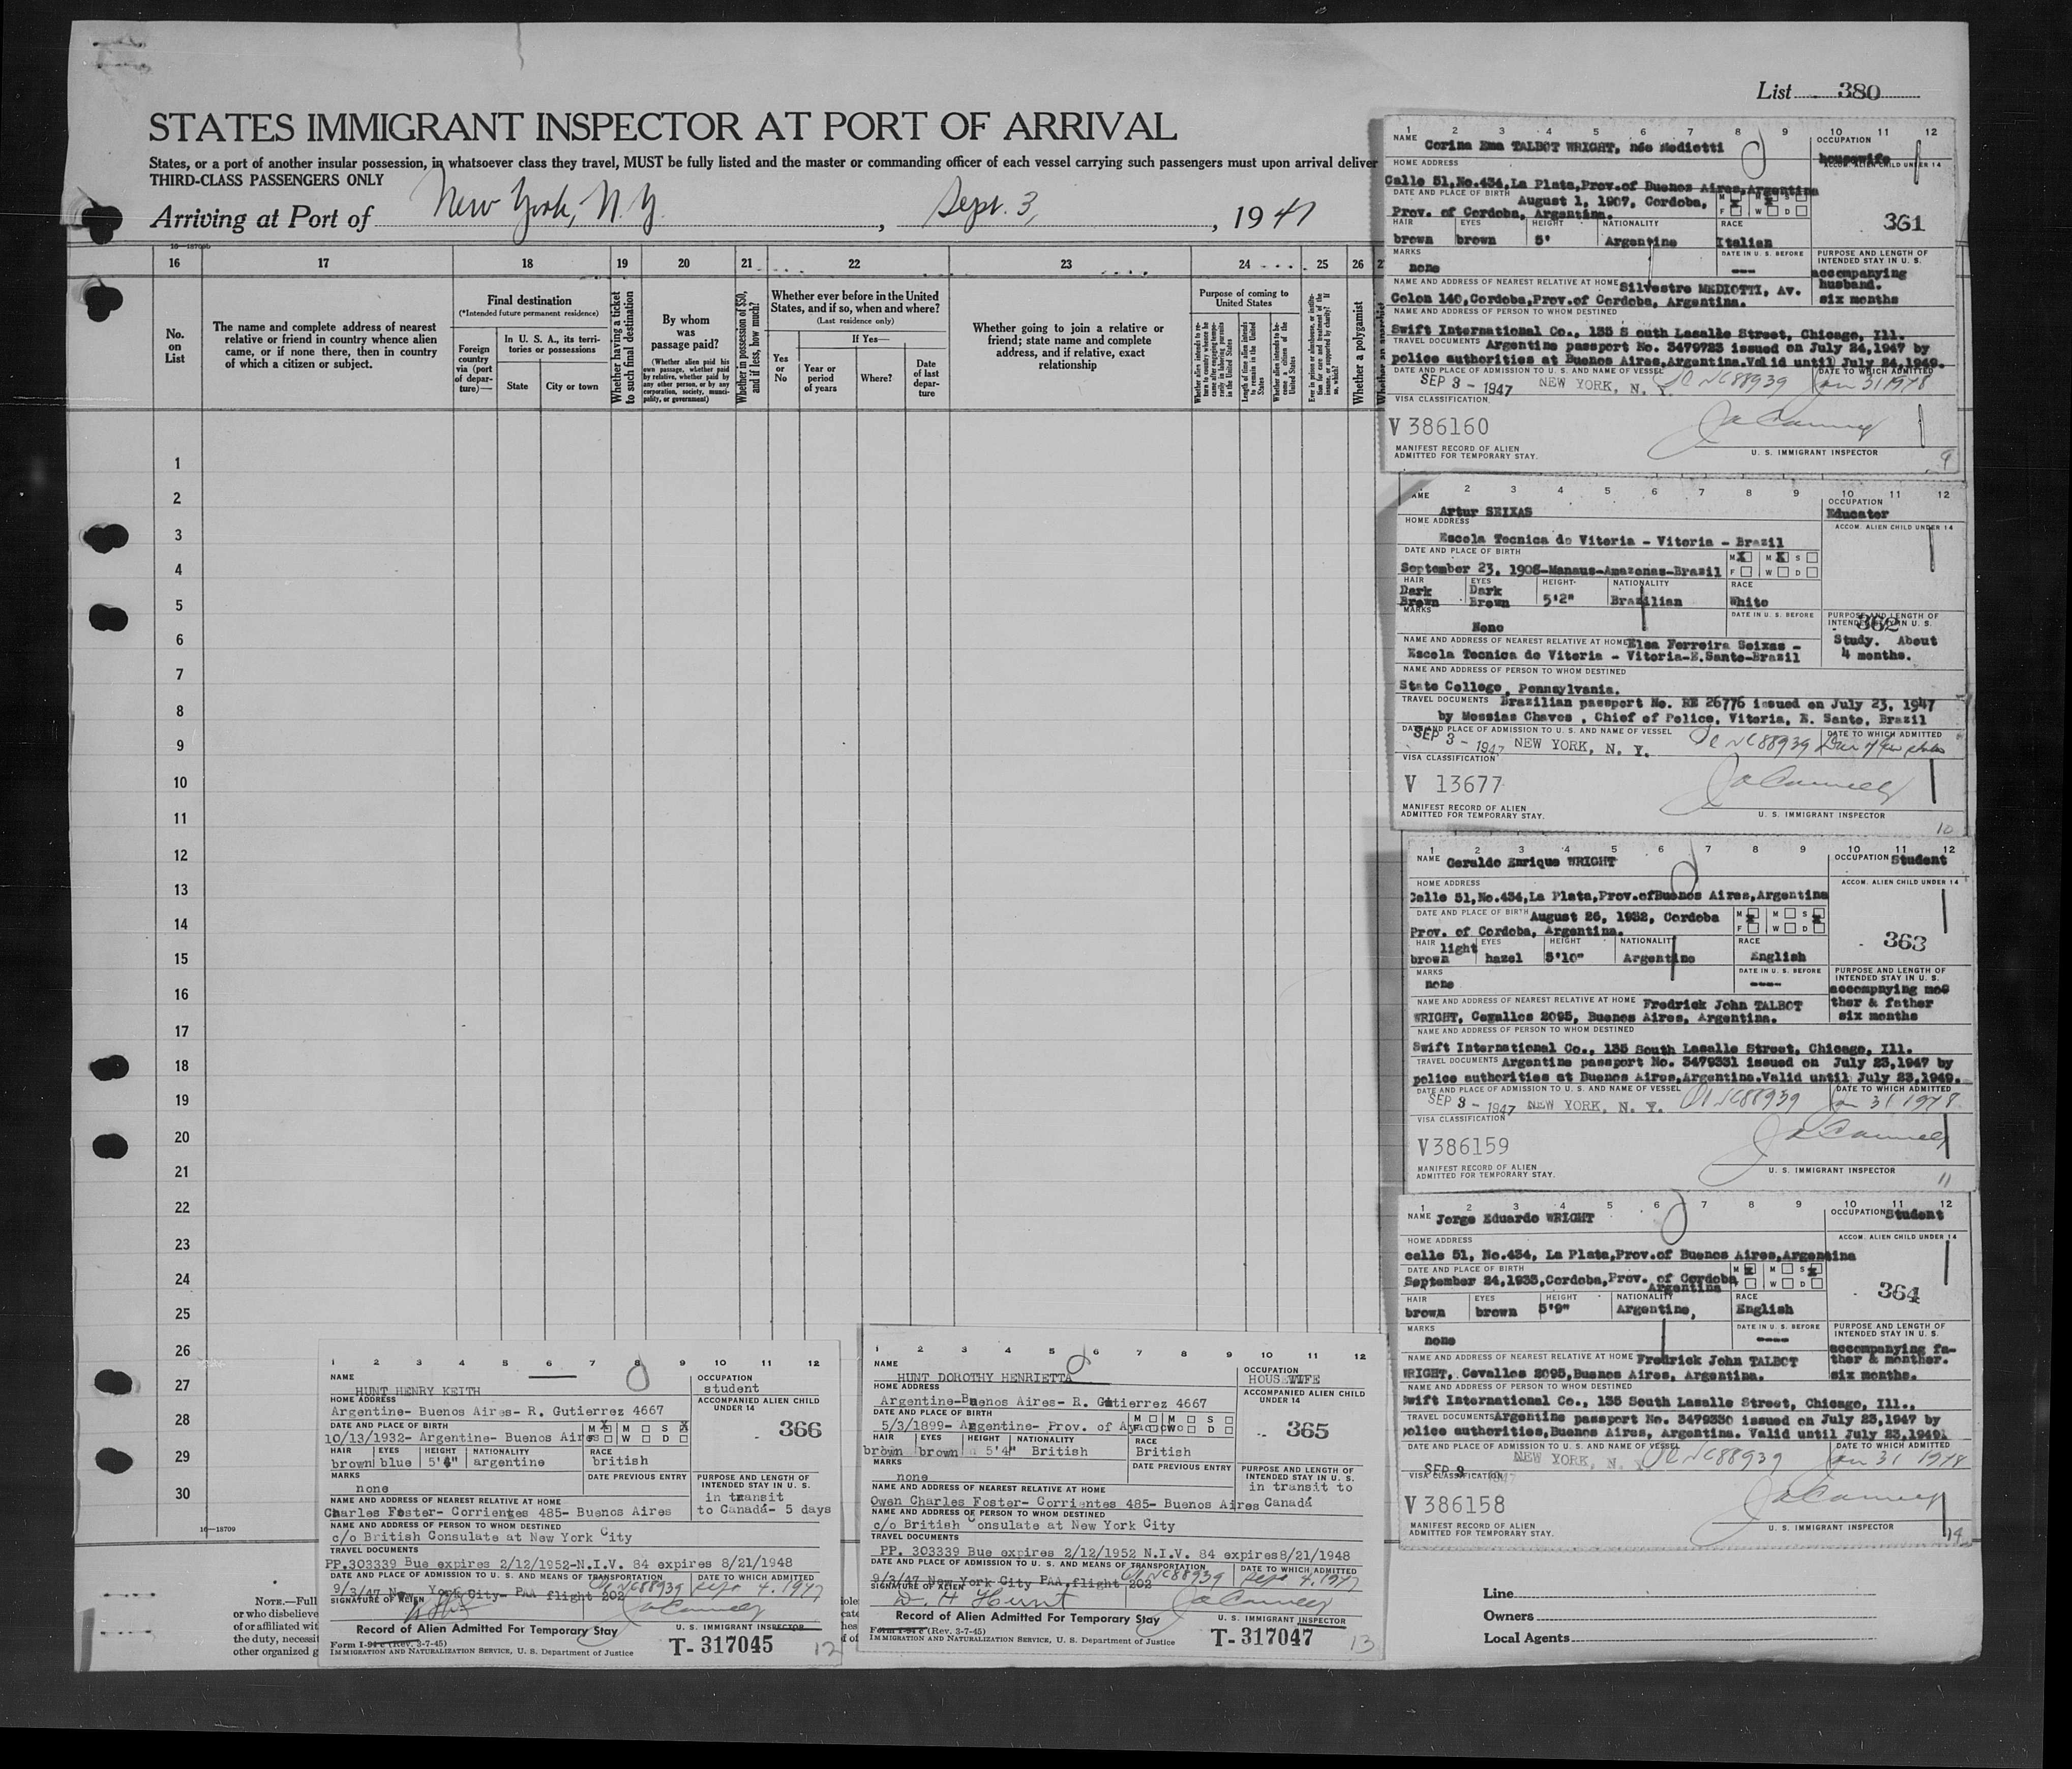 List 380
STATES IMMIGRANT INSPECTOR AT PORT OF ARRIVAL
States, or a port of another insular possession, in whatsoever class they travel, MUST be fully listed and the master or commanding officer of each vessel carrying such passengers must upon arrival deliver
THIRD-CLASS PASSENGERS ONLY
Arriving at Port of New York, N.Y. , Sept. 3, , 1947
16—18709b
16 17 18 19 20 21 22 23 24 25 26 2
No. on List
The name and complete address of nearest relative or friend in country whence alien came, or if none there, then in country of which a citizen or subject.
Final destination
(*Intended future permanent residence)
Foreign country via (port of departure)—
In U. S. A., its territories or possessions
State
City or town
Whether having a ticket to such final destination
By whom was passage paid?
(Whether alien paid his own passage, whether paid by relative, whether paid by any other person, or by any corporation, society, municipality, or government)
Whether in possession of $50, and if less, how much?
Whether ever before in the United States, and if so, when and where?
(Last residence only)
Yes or No
If Yes—
Year or period of years
Where?
Date of last departure
Whether going to join a relative or friend; state name and complete address, and if relative, exact relationship
Purpose of coming to United States
Whether alien intends to return to country whence he came after engaging temporarily in laboring pursuits in the United States
Length of time alien intends to remain in the United States
Whether alien intends to become a citizen of the United States
Ever in prison or almshouse, or institution for care and treatment of the insane, or supported by charity? If so, which?
Whether a polygamist
1
2
3
4
5
6
7
8
9
10
11
12
13
14
15
16
17
18
19
20
21
22
23
24
25
26
27
28
29
30
16—18709
NOTE.—Full
or who disbelieve
of or affiliated wit
the duty, necessit
other organized g
1 2 3 4 5 6 7 8 9 10 11 12
NAME Corina Ema TALBOT WRIGHT, née Mediotti
OCCUPATION housewife
HOME ADDRESS
ACCOM. ALIEN CHILD UNDER 14
Calle 51,No.434,La Plata,Prov.of Buenos Aires,Argentina
DATE AND PLACE OF BIRTH August 1, 1907, Cordoba,
Prov. of Cordoba, Argentina.
M M S
F W D
361
HAIR EYES HEIGHT NATIONALITY RACE
brown brown 5' Argentine Italian
MARKS
none
DATE IN U. S. BEFORE
---
PURPOSE AND LENGTH OF INTENDED STAY IN U. S.
accompanying
husband.
six months
NAME AND ADDRESS OF NEAREST RELATIVE AT HOME Silvestre MEDIOTTI, Av.
Colon 140,Cordoba,Prov.of Cordoba, Argentina.
NAME AND ADDRESS OF PERSON TO WHOM DESTINED
Swift International Co., 135 S outh Lasalle Street, Chicago, Ill.
TRAVEL DOCUMENTS Argentine passport No. 3479723 issued on July 24,1947 by
police authorities at Buenos Aires,Argentina.Valid until July 24,1949.
DATE AND PLACE OF ADMISSION TO U. S. AND NAME OF VESSEL
DATE TO WHICH ADMITTED
SEP 3 - 1947 NEW YORK, N. Y. NC88939 Jan 31 1948
VISA CLASSIFICATION
V 386160
MANIFEST RECORD OF ALIEN
ADMITTED FOR TEMPORARY STAY.
U. S. IMMIGRANT INSPECTOR
9
2 3 4 5 6 7 8 9 10 11 12
NAME
Artur SEIXAS
OCCUPATION
Educator
HOME ADDRESS
ACCOM. ALIEN CHILD UNDER 14
Escola Tecnica do Vitoria - Vitoria - Brazil
DATE AND PLACE OF BIRTH
September 23, 1908-Manaus-Amazonas-Brazil
M X M X S
F W D
HAIR EYES HEIGHT NATIONALITY RACE
Dark Brown Dark Brown 5'2" Brazilian White
MARKS
None
DATE IN U. S. BEFORE
PURPOSE AND LENGTH OF INTENDED STAY IN U. S.
362
Study. About
4 months.
NAME AND ADDRESS OF NEAREST RELATIVE AT HOME Elsa Ferreira Seixas -
Escola Tecnica de Vitoria - Vitoria-E.Santo-Brazil
NAME AND ADDRESS OF PERSON TO WHOM DESTINED
State College, Pennsylvania.
TRAVEL DOCUMENTS Brazilian passport No. RE 26776 issued on July 23, 1947
by Messias Chaves , Chief of Police, Vitoria, E. Santo, Brazil
DATE AND PLACE OF ADMISSION TO U. S. AND NAME OF VESSEL
DATE TO WHICH ADMITTED
SEP 3 - 1947 NEW YORK, N. Y. NC88939
VISA CLASSIFICATION
V 13677
MANIFEST RECORD OF ALIEN
ADMITTED FOR TEMPORARY STAY.
U. S. IMMIGRANT INSPECTOR
10
1 2 3 4 5 6 7 8 9 10 11 12
NAME Geraldo Enrique WRIGHT
OCCUPATION Student
HOME ADDRESS
ACCOM. ALIEN CHILD UNDER 14
Calle 51,No.434,La Plata,Prov.ofBuenos Aires,Argentina
DATE AND PLACE OF BIRTH August 26, 1932, Cordoba
Prov. of Cordoba, Argentina.
M M S
F W D
363
HAIR EYES HEIGHT NATIONALITY RACE
light brown hazel 5'10" Argentine English
MARKS
none
DATE IN U. S. BEFORE
----
PURPOSE AND LENGTH OF INTENDED STAY IN U. S.
accompnying mo
ther & father
six months
NAME AND ADDRESS OF NEAREST RELATIVE AT HOME Fredrick John TALBOT
WRIGHT, Cegallos 2095, Buenos Aires, Argentina.
NAME AND ADDRESS OF PERSON TO WHOM DESTINED
Swift International Co., 135 South Lasalle Street, Chicago, Ill.
TRAVEL DOCUMENTS Argentine passport No. 3479331 issued on July 23,1947 by
police authorities at Buenos Aires,Argentina.Valid until July 23,1949.
DATE AND PLACE OF ADMISSION TO U. S. AND NAME OF VESSEL
DATE TO WHICH ADMITTED
SEP 3 - 1947 NEW YORK, N. Y. NC88939 Jan 31 1948
VISA CLASSIFICATION
V386159
MANIFEST RECORD OF ALIEN
ADMITTED FOR TEMPORARY STAY.
U. S. IMMIGRANT INSPECTOR
11
1 2 3 4 5 6 7 8 9 10 11 12
NAME Jorge Eduardo WRIGHT
OCCUPATION Student
HOME ADDRESS
ACCOM. ALIEN CHILD UNDER 14
calle 51, No.434, La Plata,Prov.of Buenos Aires,Argentina
DATE AND PLACE OF BIRTH
September 24,1935,Cordoba,Prov. of Cordoba,
Argentina
M M S
W D
364
HAIR EYES HEIGHT NATIONALITY RACE
brown brown 5'9" Argentine, English
MARKS
none
DATE IN U. S. BEFORE
----
PURPOSE AND LENGTH OF INTENDED STAY IN U. S.
accompanying fa-
ther & monther.
six months.
NAME AND ADDRESS OF NEAREST RELATIVE AT HOME Fredrick John TALBOT
WRIGHT, Cevallos 2095,Buenos Aires, Argentina.
NAME AND ADDRESS OF PERSON TO WHOM DESTINED
Swift International Co., 135 South Lasalle Street, Chicago, Ill.,
TRAVEL DOCUMENTS Argentine passport No. 3479330 issued on July 23,1947 by
police authorities,Buenos Aires, Argentina. Valid until July 23,1949.
DATE AND PLACE OF ADMISSION TO U. S. AND NAME OF VESSEL
DATE TO WHICH ADMITTED
SEP 3 1947 NEW YORK, N. Y. NC88939 Jan 31 1948
VISA CLASSIFICATION
V 386158
MANIFEST RECORD OF ALIEN
ADMITTED FOR TEMPORARY STAY.
U. S. IMMIGRANT INSPECTOR
14
1 2 3 4 5 6 7 8 9 10 11 12
NAME
HUNT HENRY KEITH
OCCUPATION
student
HOME ADDRESS
Argentine- Buenos Aires- R. Gutierrez 4667
ACCOMPANIED ALIEN CHILD UNDER 14
366
DATE AND PLACE OF BIRTH
10/13/1932- Argentine- Buenos Aires
M X M S X
F W D
HAIR EYES HEIGHT NATIONALITY RACE
brown blue 5'4" argentine british
MARKS
none
DATE PREVIOUS ENTRY
PURPOSE AND LENGTH OF INTENDED STAY IN U. S.
in transit
to Canadá- 5 days
NAME AND ADDRESS OF NEAREST RELATIVE AT HOME
Charles Foster- Corrientes 485- Buenos Aires
NAME AND ADDRESS OF PERSON TO WHOM DESTINED
c/o British Consulate at New York City
TRAVEL DOCUMENTS
PP.303339 Bue expires 2/12/1952-N.I.V. 84 expires 8/21/1948
DATE AND PLACE OF ADMISSION TO U. S. AND MEANS OF TRANSPORTATION
DATE TO WHICH ADMITTED
9/3/47 New York City- PAA flight 202 NC88939 Sept 4, 1947
SIGNATURE OF ALIEN
Record of Alien Admitted For Temporary Stay
U. S. IMMIGRANT INSPECTOR
Form I-94 c (Rev. 3-7-45)
IMMIGRATION AND NATURALIZATION SERVICE, U. S. Department of Justice
T- 317045
12
1 2 3 4 5 6 7 8 9 10 11 12
NAME
HUNT DOROTHY HENRIETTA
OCCUPATION
HOUSEWIFE
HOME ADDRESS
Argentine-Buenos Aires- R. Gutierrez 4667
ACCOMPANIED ALIEN CHILD UNDER 14
365
DATE AND PLACE OF BIRTH
5/3/1899- Argentine- Prov. of
M M S
F W D
HAIR EYES HEIGHT NATIONALITY RACE
brown brown 5'4" British British
MARKS
none
DATE PREVIOUS ENTRY
PURPOSE AND LENGTH OF INTENDED STAY IN U. S.
in transit to
Canadá
NAME AND ADDRESS OF NEAREST RELATIVE AT HOME
Owen Charles Foster- Corrientes 485- Buenos Aires
NAME AND ADDRESS OF PERSON TO WHOM DESTINED
c/o British Consulate at New York City
TRAVEL DOCUMENTS
PP. 303339 Bue expires 2/12/1952 N.I.V. 84 expires8/21/1948
DATE AND PLACE OF ADMISSION TO U. S. AND MEANS OF TRANSPORTATION
DATE TO WHICH ADMITTED
9/3/47 New York City PAA flight 202 NC88939 Sept 4, 1947
SIGNATURE OF ALIEN
D. H Hunt
Record of Alien Admitted For Temporary Stay
U. S. IMMIGRANT INSPECTOR
Form I-94 c (Rev. 3-7-45)
IMMIGRATION AND NATURALIZATION SERVICE, U. S. Department of Justice
T- 317047
13
Line
Owners
Local Agents